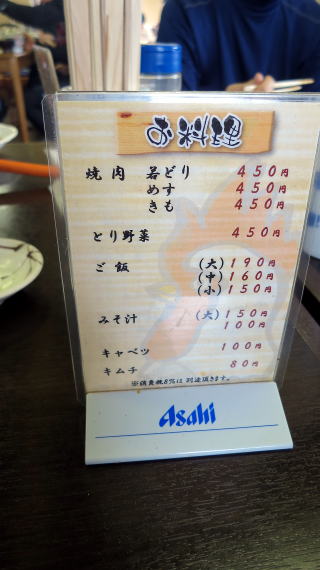 お料理
焼肉 若どり 450円
めす 450円
きも 450円
とり野菜 450円
ご飯 (大)190円
(中)160円
(小)150円
みそ汁 (大)150円
100円
キャベツ 100円
キムチ 80円
※消費税8%は別途頂きます。
Asahi